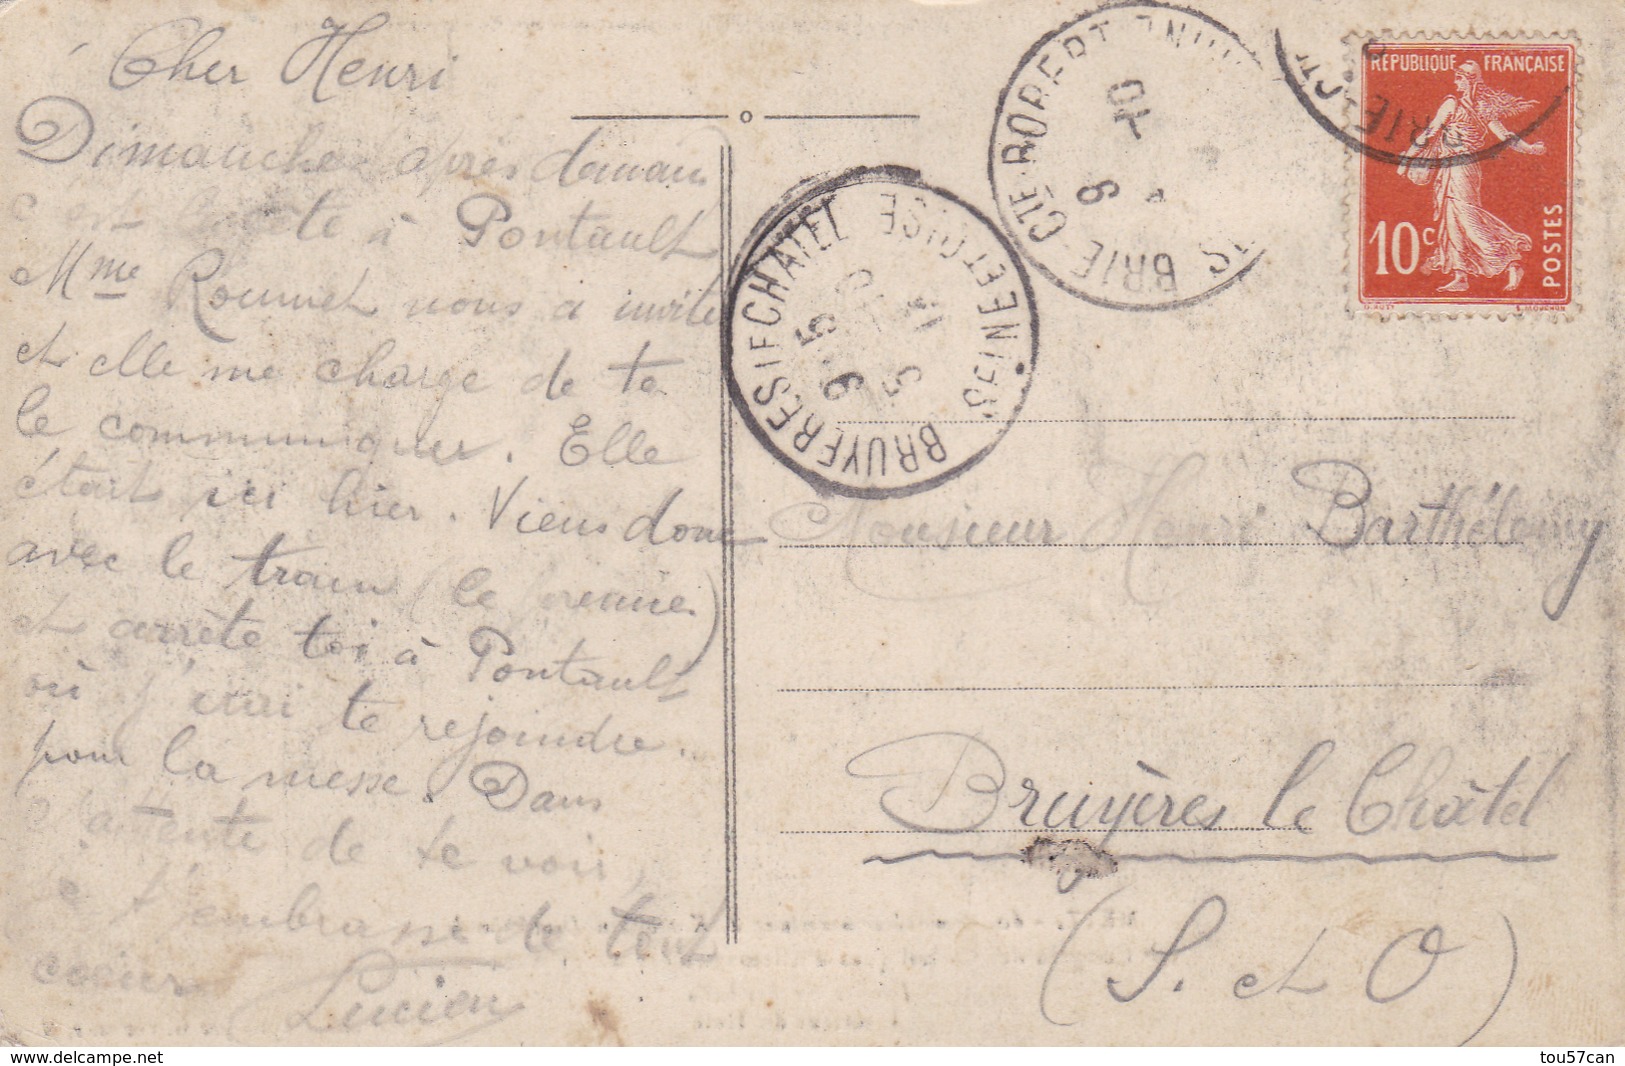 Cher Henri
Dimanche après demain
fête à Pontault
Mme Roumet nous a invité
et elle me charge de te
le communiquer. Elle
était ici hier. Viens donc
avec le train (le premier)
et arrête toi à Pontault
où j'irai te rejoindre.
pour la messe. Dans
l'attente de te voir,
je t'embrasse de tout
coeur Lucien
BRIE-CTE-ROBERT
BRUYERES LE CHATEL
SEINE ET OISE
RÉPUBLIQUE FRANÇAISE
10c
POSTES
Monsieur Henri Barthélemy
Bruyères le Châtel
(S. et O)
tou57can